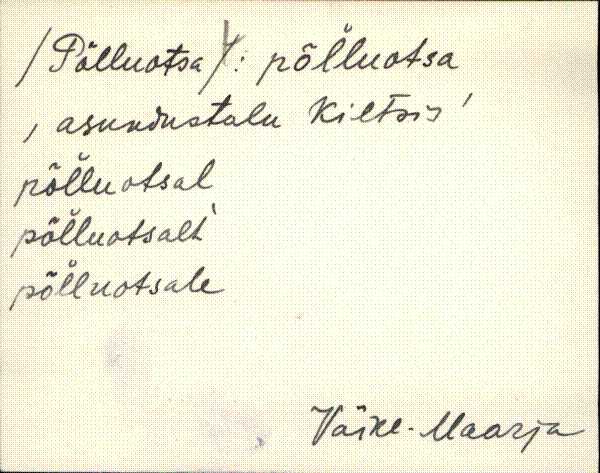 /Põlluotsa/: põl̆luotsa
, asundustalu Kiltsis'
põl̆luotsal
põl̆luotsalt
põl̆luotsale
Väike-Maarja